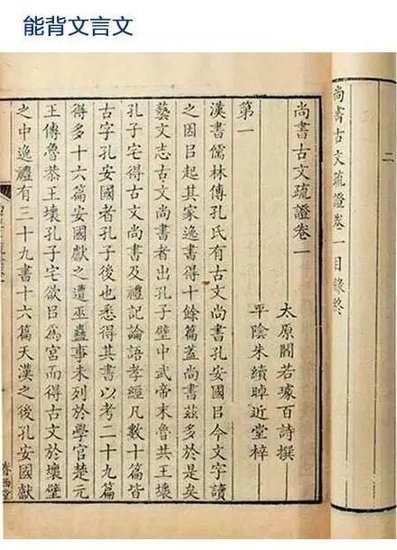 能背文言文
二
尚書古文疏證卷一目錄終
尚書古文疏證卷一
太原閻若璩百詩撰
平陰朱續晫近堂梓
第一
漢書儒林傳孔氏有古文尚書孔安國㠯今文字讀
之因㠯起其家逸書得十餘篇蓋尚書茲多於是矣
藝文志古文尚書者出孔子壁中武帝末魯共王壞
孔子宅得古文尚書及禮記論語孝經凡數十篇皆
古字孔安國者孔子後也悉得其書以考二十九篇
得多十六篇安國獻之遭巫蠱事未列於學官楚元
王傳魯恭王壞孔子宅欲㠯爲宮而得古文於壞壁
之中逸禮有三十九書十六篇天漢之後孔安國獻
眷西堂